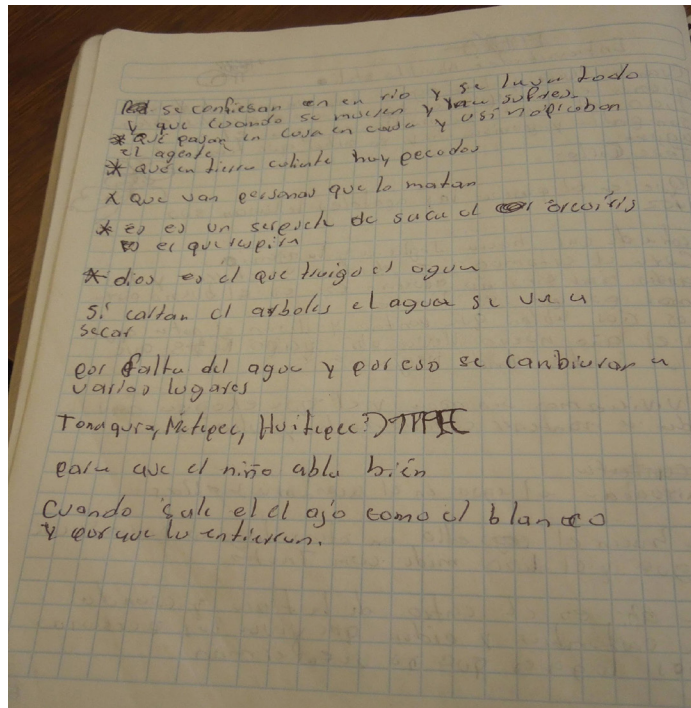 se confiesan en en rio y se lava todo
y que cuando se mueren y sufres
* que pasan en casa en casa y asi
el agente
* que en tierra caliente hay pecados
* que van personas que lo matan
* es es un de saca el
es el que
* dios es el que traigo el agua
si cortan el arboles el agua se va a
secar
por falta del agua y por eso se canbiaran a
varios lugares
Metepec, Huitepec
para que el niño abla bien
Cuando sale el el ojo como el blanco
y por que lo entierran.